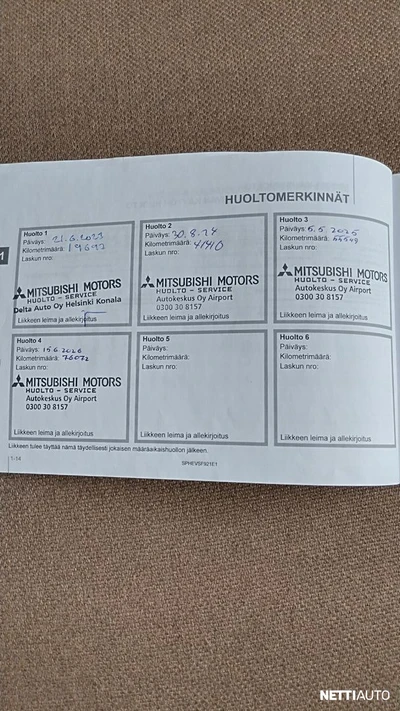 HUOLTOMERKINNÄT
1
Huolto 1
Päiväys: 21.6.2023
Kilometrimäärä: 19692
Laskun nro:
MITSUBISHI MOTORS
HUOLTO – SERVICE
Delta Auto Oy Helsinki Konala
Liikkeen leima ja allekirjoitus
Huolto 2
Päiväys: 30.8.24
Kilometrimäärä:
Laskun nro:
MITSUBISHI MOTORS
HUOLTO – SERVICE
Autokeskus Oy Airport
0300 30 8157
Liikkeen leima ja allekirjoitus
Huolto 3
Päiväys: 5.5.2025
Kilometrimäärä:
Laskun nro:
MITSUBISHI MOTORS
HUOLTO – SERVICE
Autokeskus Oy Airport
0300 30 8157
Liikkeen leima ja allekirjoitus
Huolto 4
Päiväys: 15.6.2026
Kilometrimäärä: 76072
Laskun nro:
MITSUBISHI MOTORS
HUOLTO – SERVICE
Autokeskus Oy Airport
0300 30 8157
Liikkeen leima ja allekirjoitus
Huolto 5
Päiväys:
Kilometrimäärä:
Laskun nro:
Liikkeen leima ja allekirjoitus
Huolto 6
Päiväys:
Kilometrimäärä:
Laskun nro:
Liikkeen leima ja allekirjoitus
Liikkeen tulee täyttää nämä täydellisesti jokaisen määräaikaishuollon jälkeen.
1-14
SPHEVSF921E1
NETTIAUTO